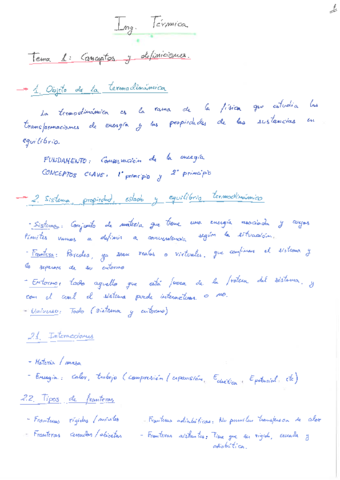 Ing. Térmica
Tema 1: Conceptos y definiciones.
→ 1. Objeto de la termodinámica
La termodinámica es la rama de la física que estudia las
transformaciones de energía y las propiedades de las sustancias en
equilibrio.
FUNDAMENTO: Conservación de la energía
CONCEPTOS CLAVE: 1º principio y 2º principio
→ 2. Sistema, propiedad, estado y equilibrio termodinámico
- Sistema: Conjunto de materia que tiene una energía asociada y cuyos
límites vamos a definir a conveniencia, según la situación.
- Frontera: Paredes, ya sean reales o virtuales, que confinan el sistema y
lo separan de su entorno
- Entorno: todo aquello que está fuera de la frontera del sistema, y
con el cual el sistema puede interactuar o no.
- Universo: Todo (sistema y entorno)
2.1. Interacciones
- Materia / masa
- Energía: calor, trabajo (compresión / expansión, E cinética, E potencial etc)
2.2. Tipos de fronteras
- Fronteras rígidas / móviles
Fronteras adiabáticas: No permiten transferencia de calor
- Fronteras cerradas / abiertas
- Fronteras aislantes: Tiene que ser rígida, cerrada y
adiabática.